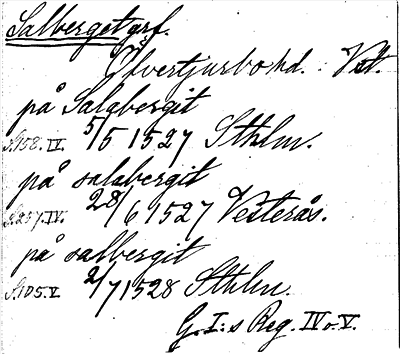 Salberget grf.
Öfvertjurbo hd. Vst.
på Salabergit
s. 158. IV. 5/5 1527 Sthlm.
på salabergit
s. 257. IV. 28/6 1527 Vesterås.
på salbergit
s. 105. V 2/7 1528 Sthlm.
G. I:s Reg. IV o. V.